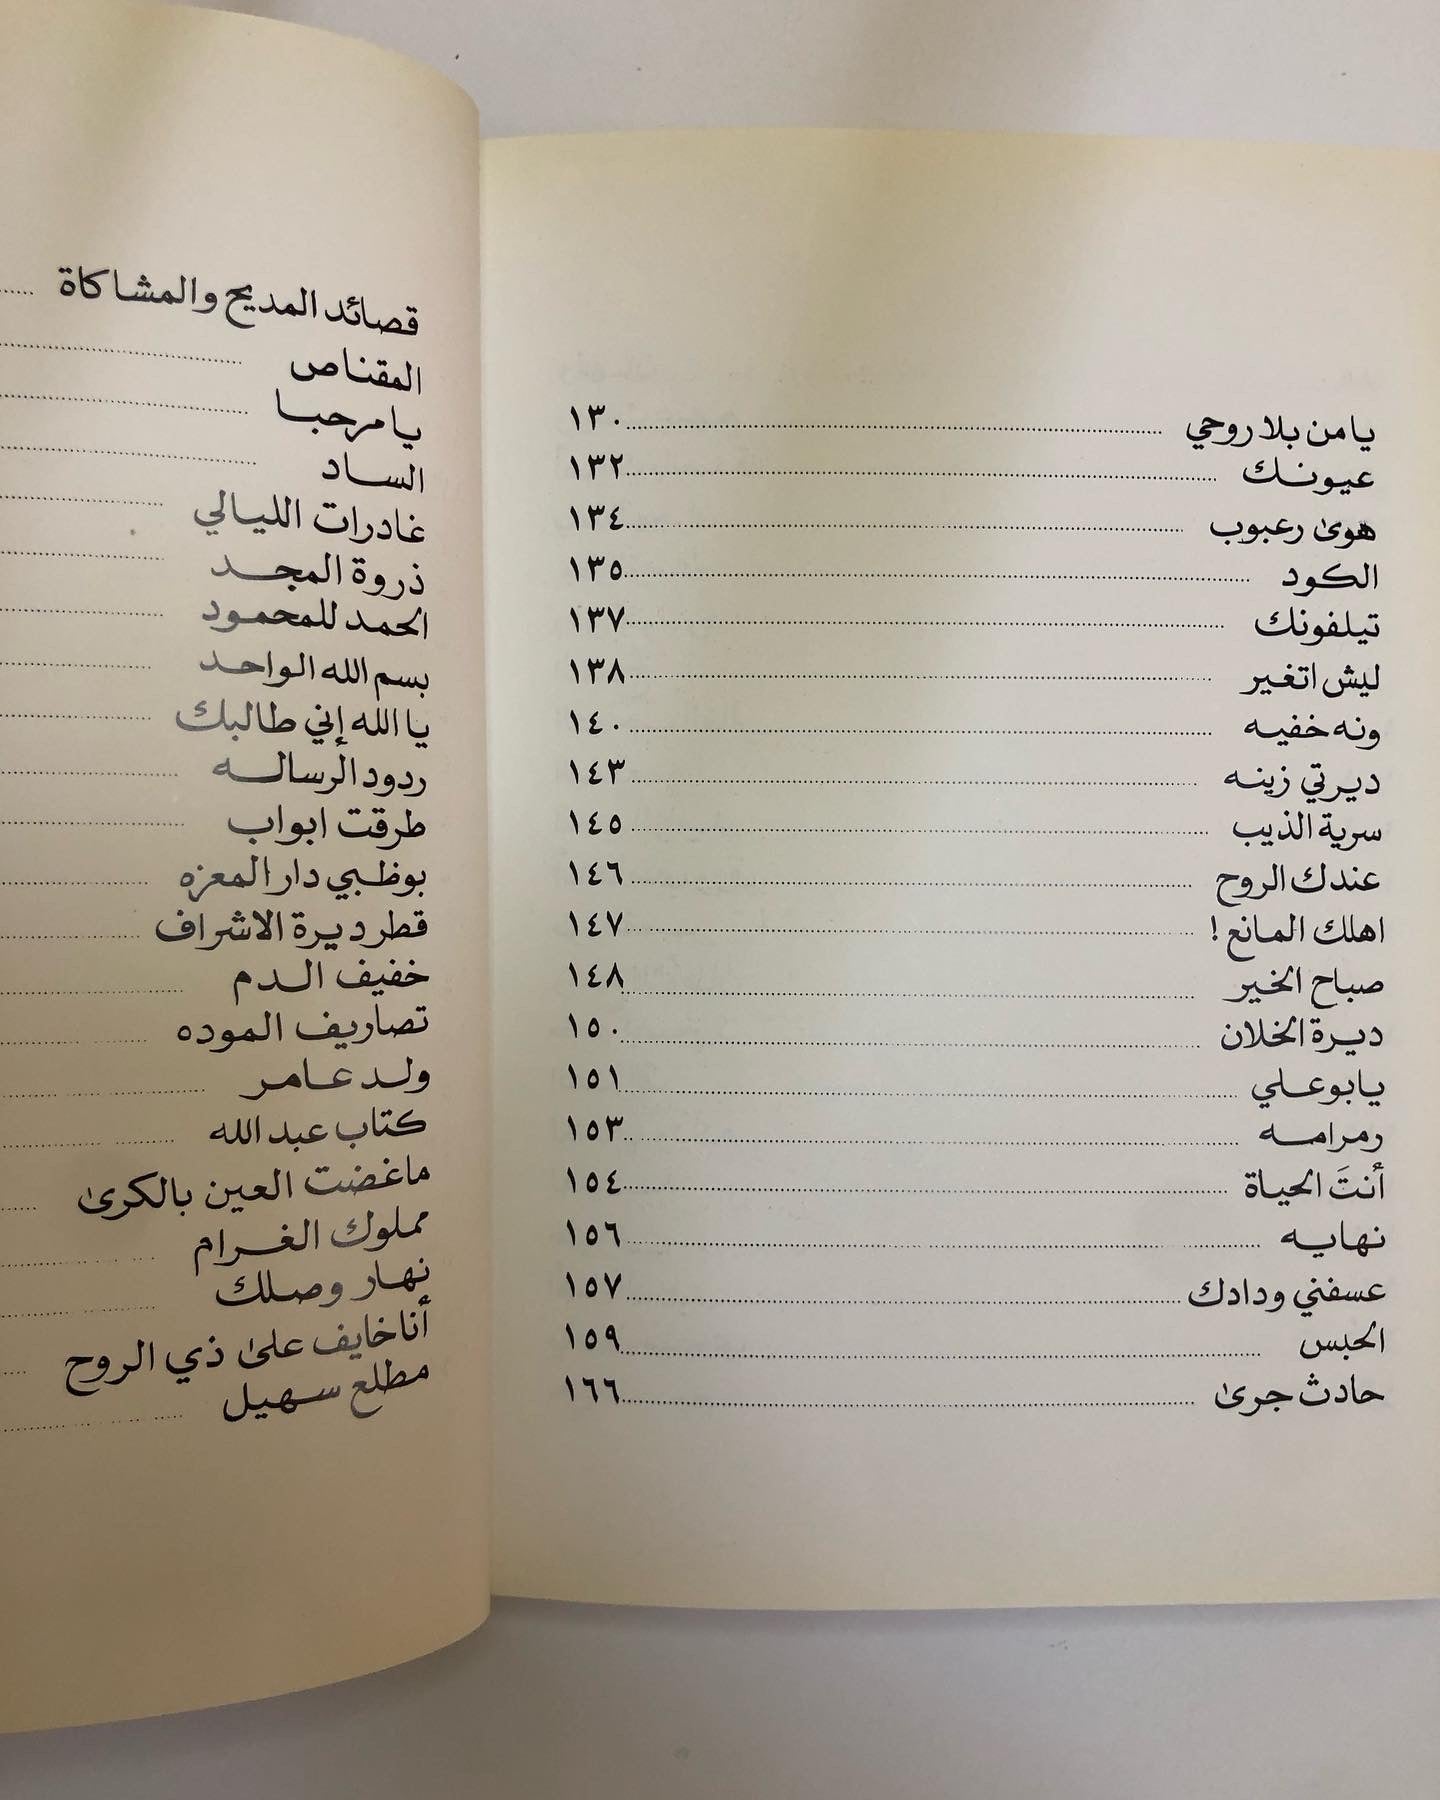 يا من بلا روحي ١٣٠
عيونك ١٣٢
هوى رعبوب ١٣٤
الكود ١٣٥
تيلفونك ١٣٧
ليش اتغير ١٣٨
ونه خفيه ١٤٠
ديرتي زينه ١٤٣
سرية الذيب ١٤٥
عندك الروح ١٤٦
اهلك المانع ! ١٤٧
صباح الخير ١٤٨
ديرة الخلان ١٥٠
يابوعلي ١٥١
رمرامه ١٥٣
أنتَ الحياة ١٥٤
نهايه ١٥٦
عسفني ودادك ١٥٧
الحبس ١٥٩
حادث جرى ١٦٦
قصائد المديح والمشاكاة
المقناص
يا مرحبا
الساد
غادرات الليالي
ذروة المجد
الحمد للمحمود
بسم الله الواحد
يا الله إني طالبك
ردود الرساله
طرقت ابواب
بوظبي دار المعزه
قطر ديرة الاشراف
خفيف الدم
تصاريف الموده
ولد عامر
كتاب عبد الله
ماغضت العين بالكرى
مملوك الغرام
نهار وصلك
أنا خايف على ذي الروح
مطلع سهيل